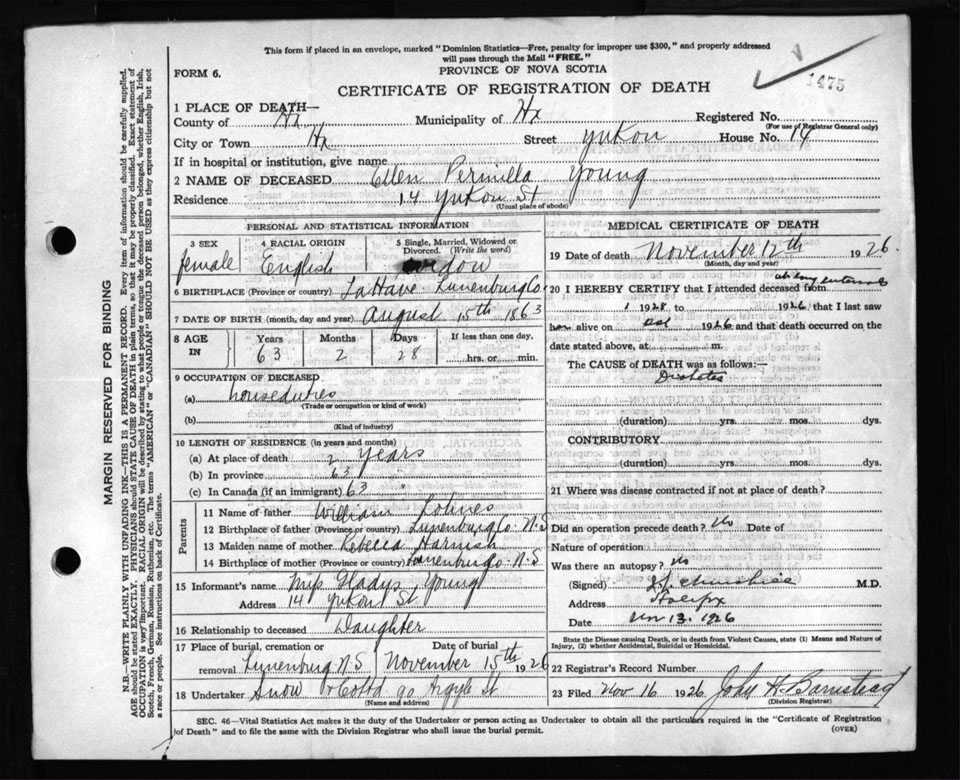 This form if placed in an envelope, marked "Dominion Statistics—Free, penalty for improper use $300," and properly addressed
will pass through the Mail "FREE."
1475
FORM 6.
PROVINCE OF NOVA SCOTIA
CERTIFICATE OF REGISTRATION OF DEATH
1 PLACE OF DEATH—
County of Hx Municipality of Hx Registered No.
(For use of Registrar General only)
City or Town Hx Street Yukon House No. 14
If in hospital or institution, give name
2 NAME OF DECEASED Ellen Permilla Young
Residence 14 Yukon St
(Usual place of abode)
PERSONAL AND STATISTICAL INFORMATION
3 SEX 4 RACIAL ORIGIN 5 Single, Married, Widowed or
Divorced. (Write the word)
female English widow
6 BIRTHPLACE (Province or country) LaHave Lunenburg Co
7 DATE OF BIRTH (month, day and year) August 15th 1863
8 AGE IN Years Months Days If less than one day,
63 2 28 hrs. or min.
9 OCCUPATION OF DECEASED
(a) houseduties
(Trade or occupation or kind of work)
(b)
(Kind of industry)
10 LENGTH OF RESIDENCE (in years and months)
(a) At place of death 2 years
(b) In province 63 "
(c) In Canada (if an immigrant) 63 "
Parents
11 Name of father William Lohnes
12 Birthplace of father (Province or country) Lunenburg Co. N.S
13 Maiden name of mother Rebecca Harnish
14 Birthplace of mother (Province or country) Lunenburg Co N.S
15 Informant's name Miss Gladys Young
Address 14 Yukon St
16 Relationship to deceased Daughter
17 Place of burial, cremation or removal Date of burial
Lunenburg N.S November 15th 1926
18 Undertaker Snow & Co Ltd 90 Argyle St
(Name and address)
MEDICAL CERTIFICATE OF DEATH
19 Date of death November 12th 1926
(Month, day and year)
20 I HEREBY CERTIFY that I attended deceased from at long intervals
1928 to 1926 that I last saw
her alive on Oct 1926 and that death occurred on the
date stated above, at m.
The CAUSE of DEATH was as follows:—
Diabetes
(duration) yrs. mos. dys.
CONTRIBUTORY
(duration) yrs. mos. dys.
21 Where was disease contracted if not at place of death?
Did an operation precede death? No Date of
Nature of operation
Was there an autopsy? No
(Signed) M.D.
Address Halifax
Date Nov 13. 1926
State the Disease causing Death, or in death from Violent Causes, state (1) Means and Nature of
Injury, (2) whether Accidental, Suicidal or Homicidal.
22 Registrar's Record Number
23 Filed Nov 16 1926 John H. Barnstead
(Division Registrar)
SEC. 46—Vital Statistics Act makes it the duty of the Undertaker or person acting as Undertaker to obtain all the particulars required in the "Certificate of Registration
of Death" and to file the same with the Division Registrar who shall issue the burial permit.
(OVER)
MARGIN RESERVED FOR BINDING
N.B.—WRITE PLAINLY WITH UNFADING INK—THIS IS A PERMANENT RECORD. Every item of information should be carefully supplied.
AGE should be stated EXACTLY. PHYSICIANS should STATE CAUSE OF DEATH in plain terms, so that it may be properly classified. Exact statement of
OCCUPATION is very important. RACIAL ORIGIN will be described by stating to what people or tongue the deceased person belonged, whether English, Irish,
Scotch, French, German, Russian, Ruthenian, etc. The terms "AMERICAN" or "CANADIAN" SHOULD NOT BE USED as they express citizenship but not
a race or people. See instructions on back of Certificate.